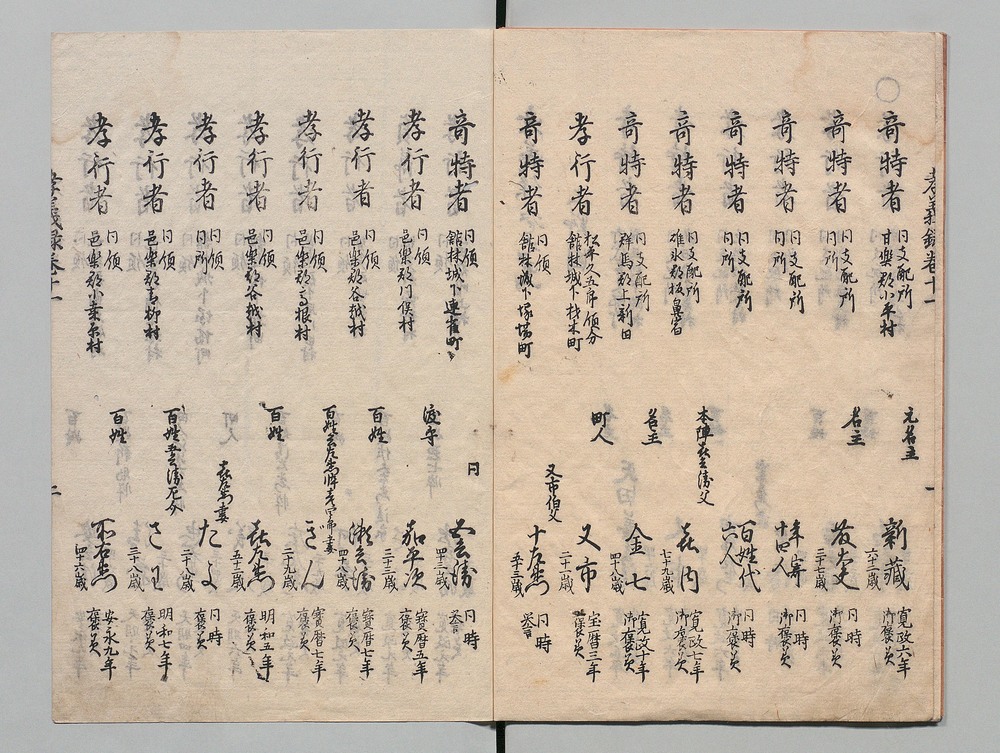 孝義録巻十一
奇特者
同支配所
甘楽郡小平村
元名主
新蔵
六十二歳
寛政六年
御褒美
奇特者
同支配所
同所
名主
三十七歳
同時
御褒美
奇特者
同支配所
同所
年寄
十四人
同時
御褒美
奇特者
同支配所
同所
百姓代
六人
同時
御褒美
奇特者
同支配所
碓氷郡板鼻宿
本陣喜兵衛父
喜内
七十九歳
寛政七年
御褒美
奇特者
同支配所
群馬郡上新田
名主
金七
四十八歳
寛政十年
御褒美
孝行者
松平久五郎領分
館林城下材木町
町人
又市
二十一歳
宝暦三年
褒美
奇特者
同領
館林城下塚場町
又市伯父
十左衛門
五十三歳
同時
褒美
奇特者
同領
館林城下連雀町
同
四十三歳
同時
褒美
孝行者
同領
邑楽郡川俣村
渡守
嘉平次
三十三歳
宝暦五年
褒美
孝行者
同領
邑楽郡谷越村
百姓
四十八歳
宝暦七年
褒美
孝行者
同領
邑楽郡高根村
きん
二十九歳
宝暦七年
褒美
孝行者
同領
邑楽郡谷越村
百姓
喜左衛門
五十二歳
明和五年
褒美
孝行者
同領
同所
喜左衛門妻
たよ
二十八歳
同時
褒美
孝行者
同領
邑楽郡青柳村
三十八歳
明和七年
褒美
孝行者
同領
邑楽郡小桑原村
百姓
四十六歳
安永九年
褒美
孝義録巻十一
二